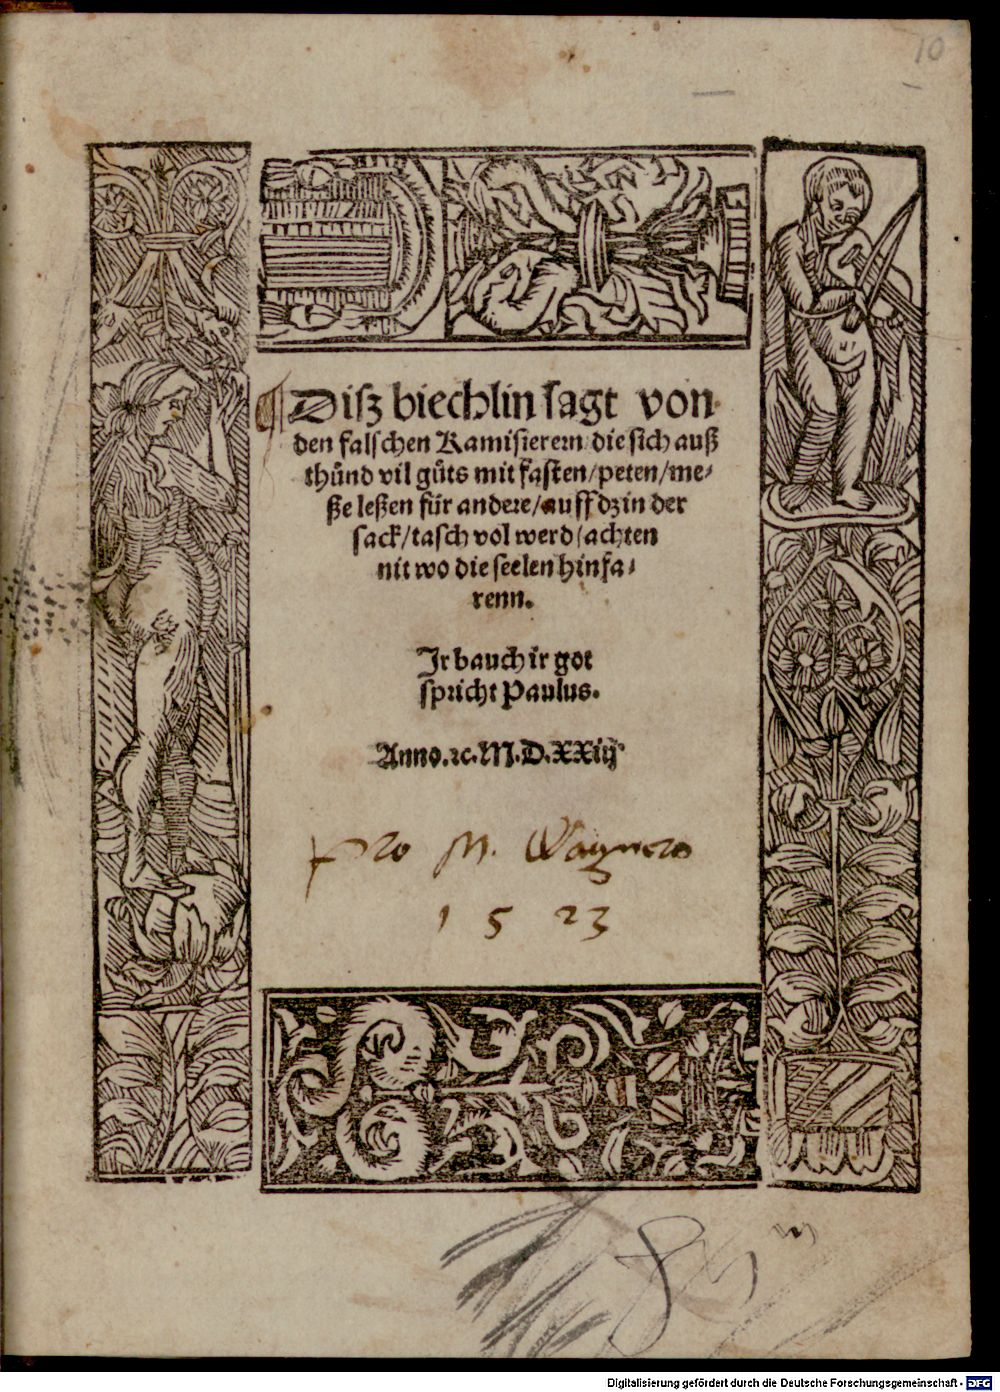 10
¶ Disz biechlin sagt von
den falschen Kamisierern die sich auß
thünd vil gůts mit fasten/peten/me-
ße leßen für andere/auff dz in der
sack/tasch vol werd/achten
nit wo die seelen hinfa-
renn.
Ir bauch ir got
spricht Paulus.
Anno. ⁊c. M.D.XXiij
pro M. Wagnero
1523
Digitalisierung gefördert durch die Deutsche Forschungsgemeinschaft - DFG